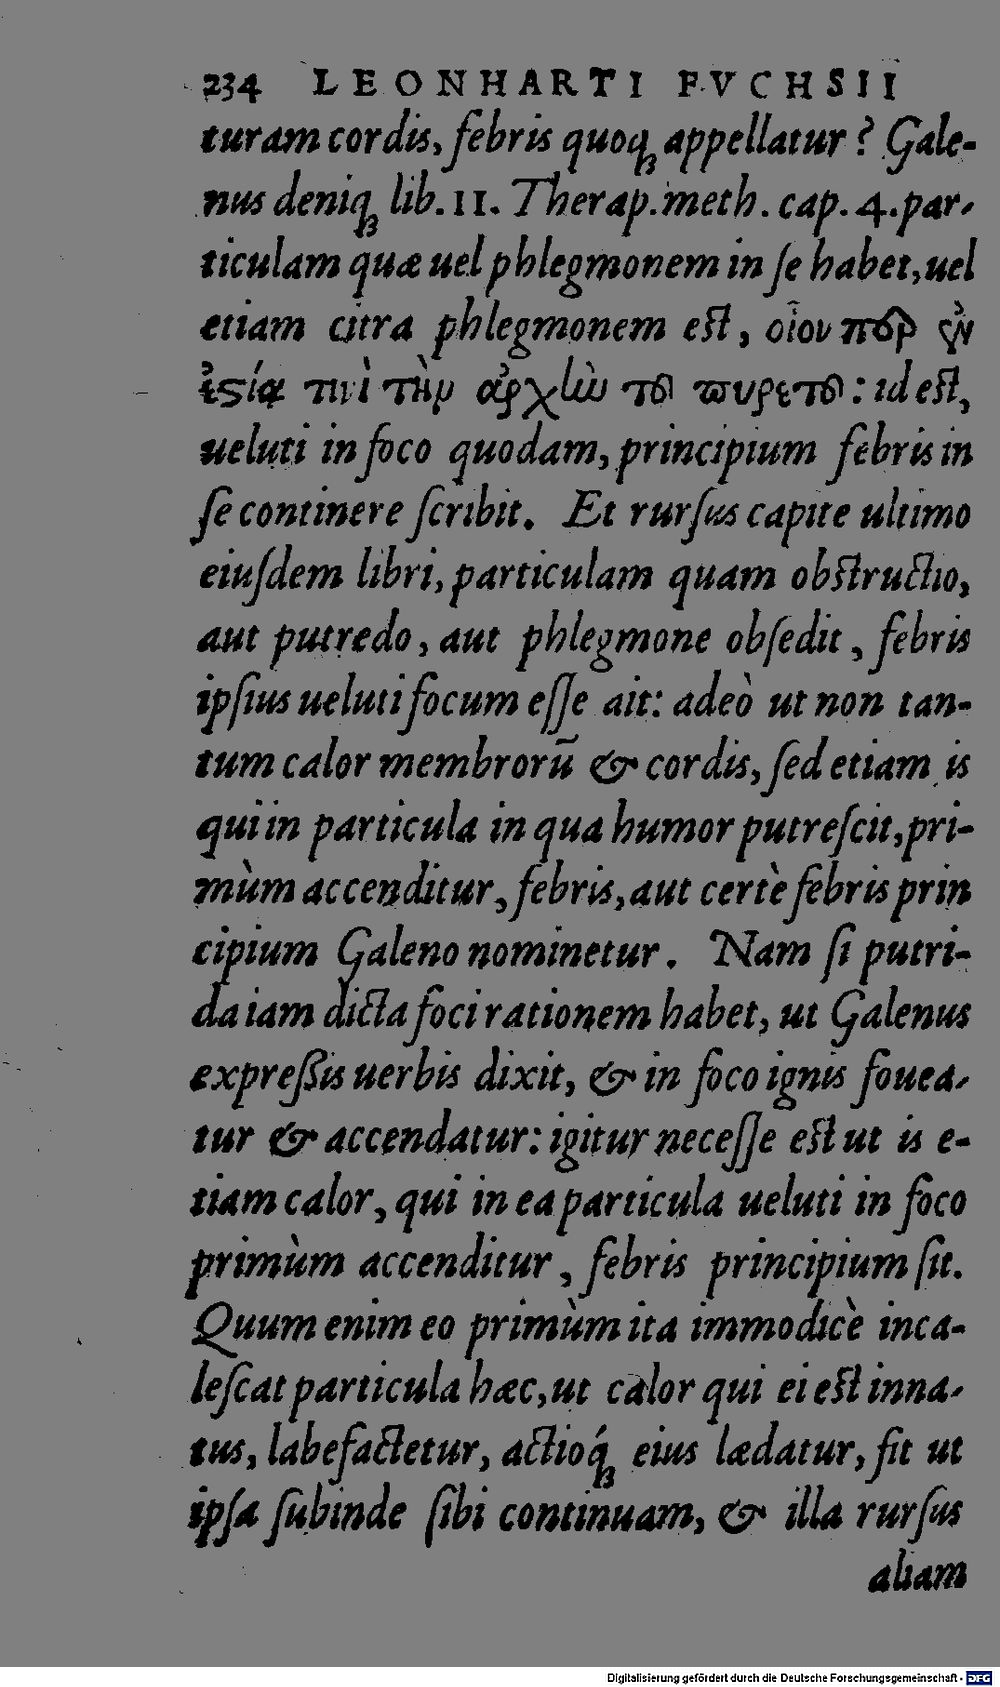 234 LEONHARTI FVCHSII
turam cordis, febris quoqꝫ appellatur? Gale-
nus deniqꝫ lib. 11. Therap. meth. cap. 4. par-
ticulam quæ uel phlegmonem in ſe habet, uel
etiam citra phlegmonem eſt, οἷον πῦρ ἐν
ἑστίᾳ τινὶ τὴν ἀρχὴν τοῦ πυρετοῦ: id eſt,
ueluti in foco quodam, principium febris in
ſe continere ſcribit. Et rurſus capite ultimo
eiuſdem libri, particulam quam obſtructio,
aut putredo, aut phlegmone obſedit, febris
ipſius ueluti focum eſſe ait: adeò ut non tan-
tum calor membrorū & cordis, ſed etiam is
qui in particula in qua humor putreſcit, pri-
mùm accenditur, febris, aut certè febris prin
cipium Galeno nominetur. Nam ſi putri-
da iam dicta foci rationem habet, ut Galenus
expreßis uerbis dixit, & in foco ignis fouea-
tur & accendatur: igitur neceſſe eſt ut is e-
tiam calor, qui in ea particula ueluti in foco
primùm accenditur, febris principium ſit.
Quum enim eo primùm ita immodicè inca-
leſcat particula hæc, ut calor qui ei eſt inna-
tus, labefactetur, actioq́ꝫ eius lædatur, fit ut
ipſa ſubinde ſibi continuam, & illa rurſus
aliam
Digitalisierung gefördert durch die Deutsche Forschungsgemeinschaft - DFG